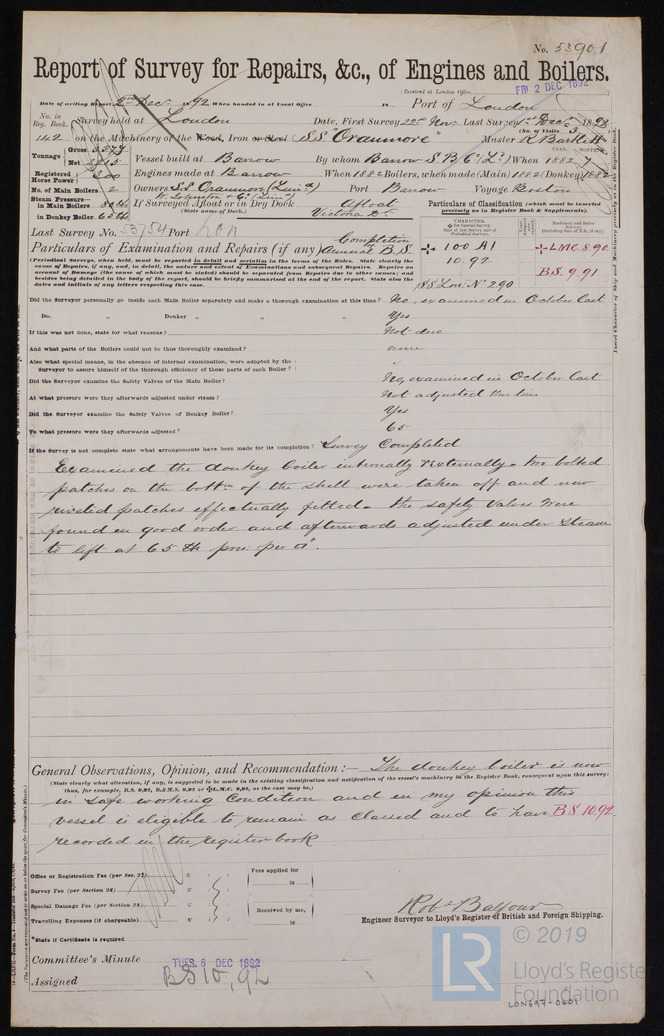 No. 53901
Report of Survey for Repairs, &c., of Engines and Boilers.
(Received at London Office
FRI 2 DEC 1892
Date of writing Report 2nd Decr 1892 When handed in at Local Office 18 Port of London
No. in Reg. Book. Survey held at London Date, First Survey 22nd Nov. Last Survey 1st Decr 1892
(No. of Visits 3)
142 on the Machinery of the Wood, Iron or Steel S.S. "Oranmore" Master R. Bartlett
Tonnage Gross 3377
Net 2215
Vessel built at Barrow By whom Barrow S.B. Co. Ld. When 1882
YEAR. MONTH.
Registered Horse Power Engines made at Barrow When 1882 Boilers, when made (Main) 1882 (Donkey) 1882
No. of Main Boilers 2 Owners S.S. Oranmore (Limd) Port Barrow Voyage Boston
W. Johnston & Co. (Limd)
Steam Pressure in Main Boilers 80 lbs If Surveyed Afloat or in Dry Dock Afloat
(State name of Dock.) Victoria Dk.
in Donkey Boiler 65 lbs
Particulars of Classification (which must be inserted precisely as in Register Book & Supplements).
Last Survey No. 53754 Port Lon
Particulars of Examination and Repairs (if any) Completion Annual B.S.
CHARACTER.
100 A1
10.92
LMC. 8.90
B.S. 9.91
SS Lon. No. 2 90
(Periodical Surveys, when held, must be reported in detail and seriatim in the terms of the Rules. State clearly the cause of Repairs, if any, and, in detail, the nature and extent of Examinations and subsequent Repairs. Repairs on account of Damage (the cause of which must be stated) should be reported separate from Repairs due to other causes; and besides being detailed in the body of the report, should be briefly summarised at the end of the report. State also the dates and initials of any letters respecting this case.
Did the Surveyor personally go inside each Main Boiler separately and make a thorough examination at this time? No, examined in October last
Do. " Donkey " " " Yes
If this was not done, state for what reasons? Not due
And what parts of the Boilers could not be thus thoroughly examined? none
Also what special means, in the absence of internal examination, were adopted by the Surveyor to assure himself of the thorough efficiency of those parts of each Boiler? "
Did the Surveyor examine the Safety Valves of the Main Boiler? No, examined in October last
At what pressure were they afterwards adjusted under steam? Not adjusted this time
Did the Surveyor examine the Safety Valves of Donkey Boiler? Yes
To what pressure were they afterwards adjusted? 65
If the Survey is not complete state what arrangements have been made for its completion? Survey Completed
Examined the donkey boiler internally & externally. two bolted
patches on the bottm of the shell were taken off and new
riveted patches effectually fitted. the safety valves were
found in good order and afterwards adjusted under steam
to lift at 65 lb pres. per □".
General Observations, Opinion, and Recommendation:— The donkey boiler is now
(State clearly what alteration, if any, is suggested to be made in the existing classification and notification of the vessel's machinery in the Register Book, consequent upon this survey; thus, for example, B.S. 9,92, B.&M.S. 9,92 or L.M.C. 9,92, as the case may be.)
in safe working condition and in my opinion this
vessel is eligible to remain as classed and to have B.S. 10.92
recorded in the register book
Office or Registration Fee (per Sec. 27) £ : :
Survey Fee (per Section 28) £ : :
Special Damage Fee (per Section 28) £ : :
Travelling Expenses (if chargeable) £ : :
Fees applied for
18
Received by me,
18
*State if Certificate is required
Robt Balfour
Engineer Surveyor to Lloyd's Register of British and Foreign Shipping.
Committee's Minute TUES. 6 DEC 1892
Assigned BS 10,92
LR
© 2019
Lloyd's Register
Foundation
LON697-0401